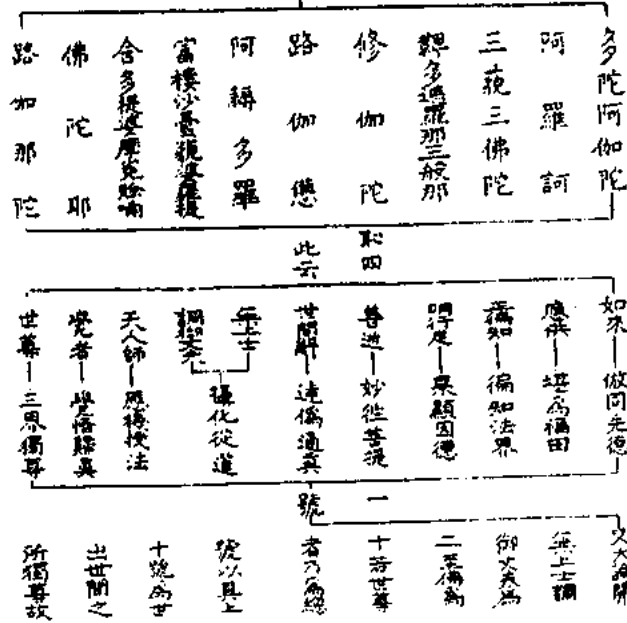 多陀阿伽陀
阿羅訶
三藐三佛陀
鞞多遮羅那三般那
修伽陀
路伽憊
阿耨多羅
富樓沙曇藐婆羅提
舍多提婆摩㝹賒喃
佛陀耶
路加那陀
四
此云
如來—倣同先德
應供—堪為福田
徧知—徧知法界
明行足—果顯因德
善逝—妙往菩提
世間解—達偽通真
無上士
調御丈夫
攝化從道
天人師—應機授法
覺者—覺悟歸真
世尊—三界獨尊
一
號
又大論開
無上士調
御丈夫為
二至佛為
十若世尊
者乃為總
號以具上
十號為世
出世間之
所獨尊故